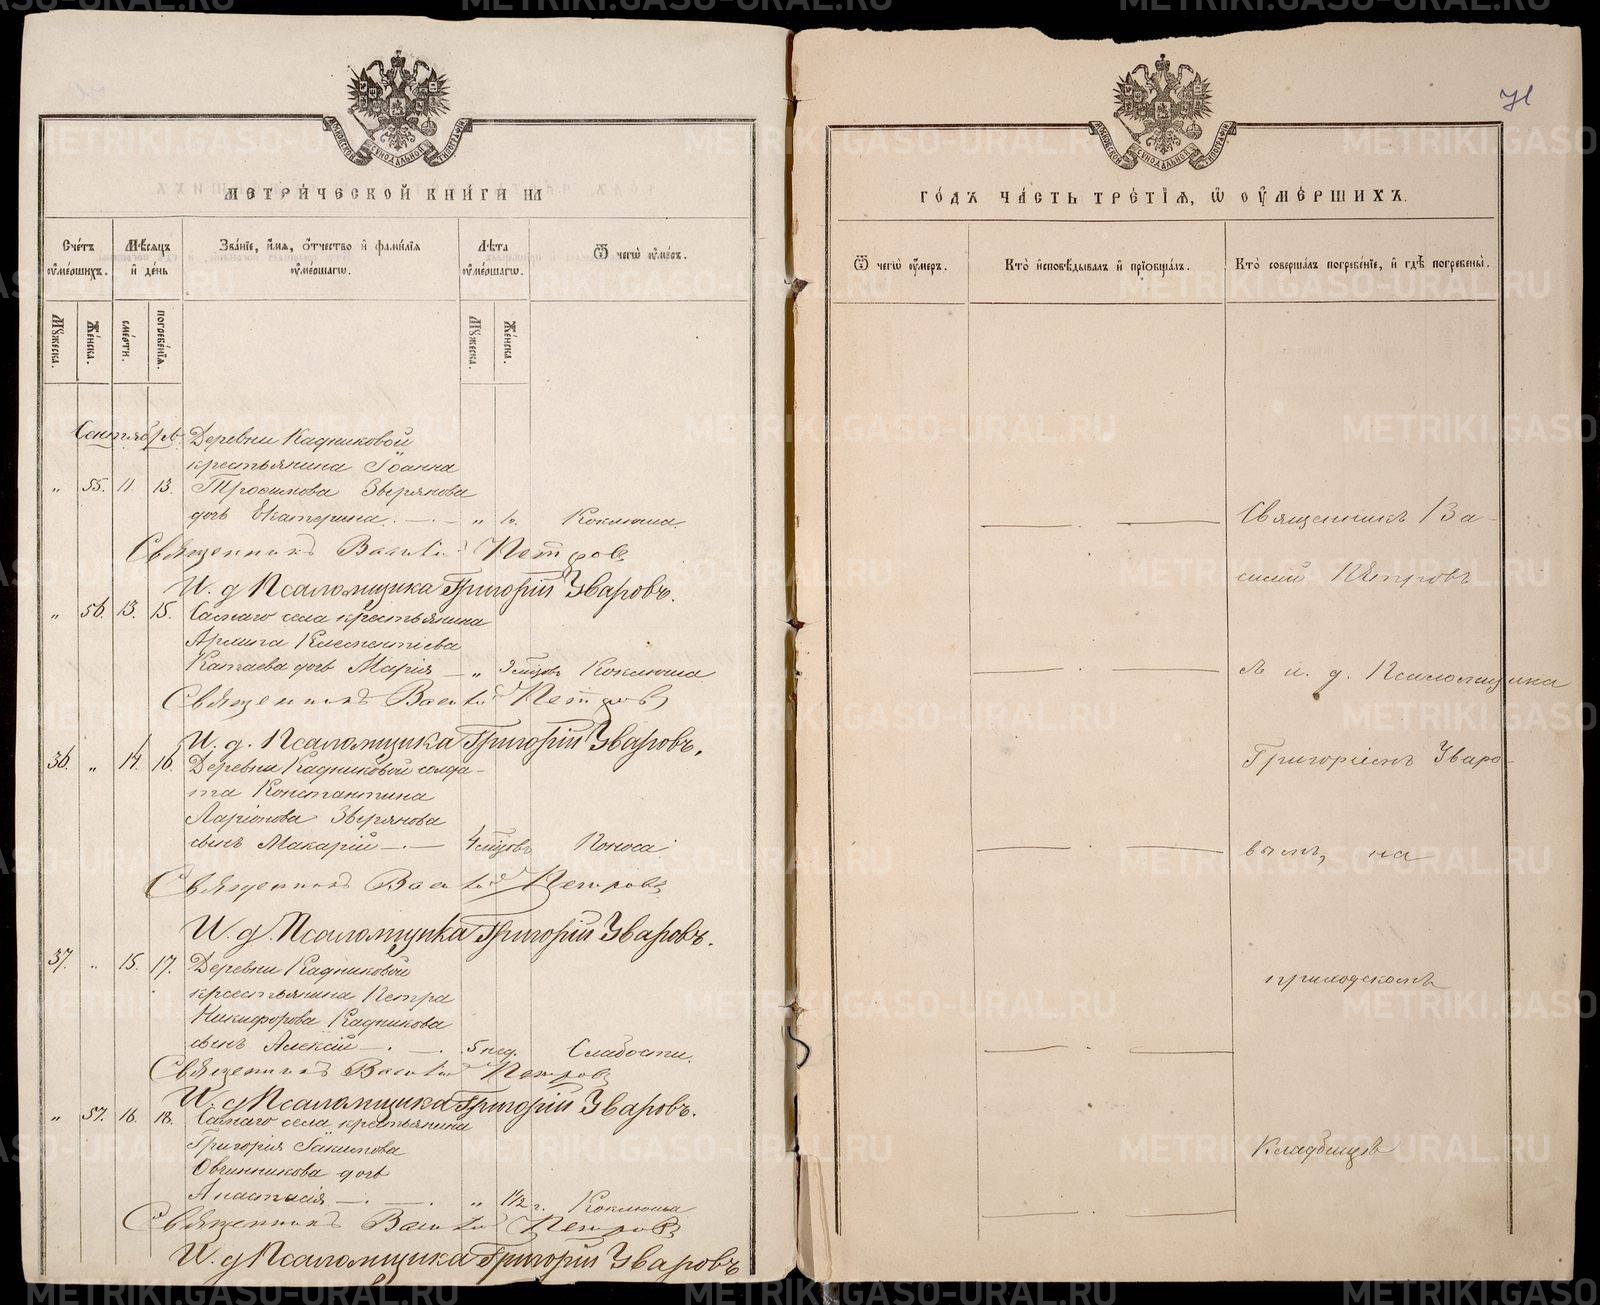 МОСКОВСКОЙ СѴНОДАЛЬНОЙ ТИПОГРАФІИ
МЕТРИ́ЧЕСКОЙ КНИ́ГИ НА
Сче́тъ ᲂуме́ршихъ.
Мѣ́сяцъ и де́нь
Зва́нїе, и́мя, ѻ́тчество и фами́лїя ᲂуме́ршагѡ.
Лѣ́та ᲂуме́ршагѡ.
Ѿ чегѡ̀ ᲂу́меръ.
Мꙋ́жеска.
Же́нска.
сме́рти.
погребе́нїя.
Мꙋ́жеска.
Же́нска.
Сентябрь.
Деревни Кадниковой
крестьянина Іоанна
„ 55. 11. 13. Трофимова Зверянова
дочь Екатерина. „ Коклюша.
Священникъ Василій Петровъ
И. д Псаломщика Григорій Уваровъ.
„ 56. 13. 15. Самаго села крестьянина
Климентіева
Катаева дочь Марія „ Коклюша
Священникъ Василій Петровъ
И. д. Псаломщика Григорій Уваровъ.
36. „ 14. 16. Деревни Кадниковой солда-
та Константина
Ларіонова Зверянова
сынъ Макарій 4 мѣсцовъ Поноса
Священникъ Василій Петровъ
И. д. Псаломщика Григорій Уваровъ.
37. „ 15. 17. Деревни Кадниковой
крестьянина Петра
Никифорова Кадникова
сынъ Алексій 5 нед. Слабости.
Священникъ Василій Петровъ
И. д Псаломщика Григорій Уваровъ.
„ 57. 16. 18. Самаго села крестьянина
Григорія Іакимова
Овчинникова дочь
Анастасія „ 1½ г. Коклюша
Священникъ Василій Петровъ
И. д Псаломщика Григорій Уваровъ
71
МОСКОВСКОЙ СѴНОДАЛЬНОЙ ТИПОГРАФІИ
ГО́ДЪ ЧА́СТЬ ТРЕ́ТЇЯ, Ѡ ОУ҆МЕ́РШИХЪ.
Ѿ чегѡ̀ ᲂу́меръ.
Кто̀ и҆сповѣ́дывалъ и҆ прїѡбща́лъ.
Кто̀ соверша́лъ погребе́нїе, и҆ гдѣ̀ погребены̀.
Священникъ Ва-
силій Петровъ
съ и. д. Псаломщика
Григоріемъ Уваро-
вымъ, на
приходскомъ
кладбищѣ
METRIKI.GASO-URAL.RU